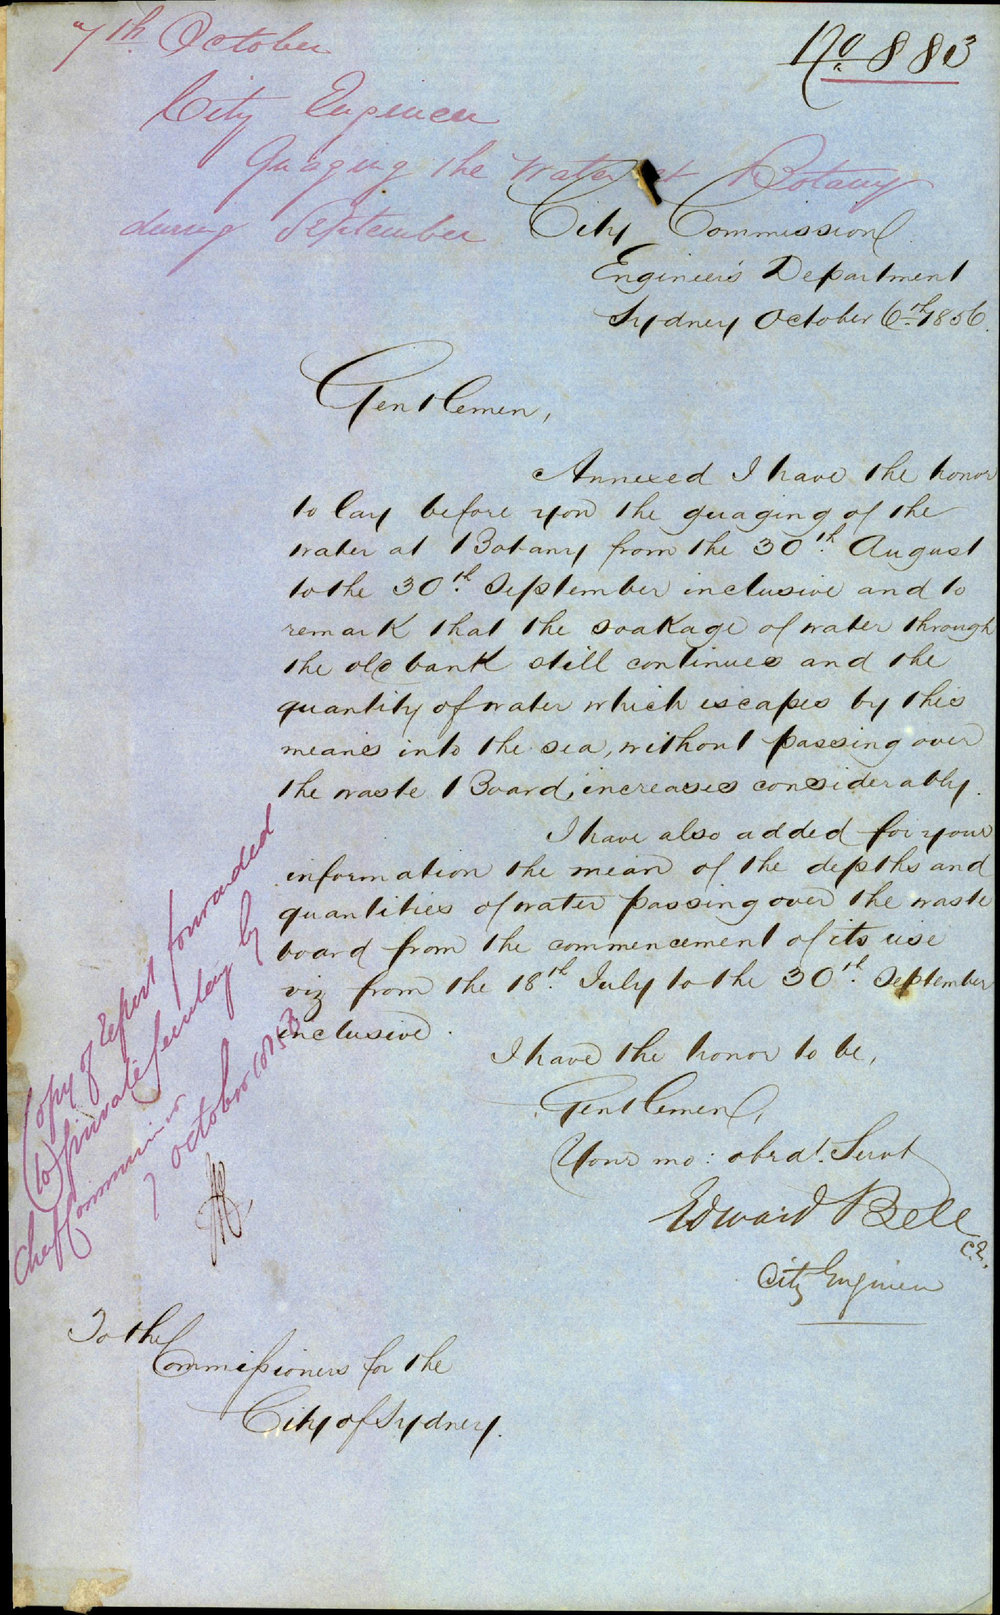 7th October
No 883
City Engineer
Guaging the Water at Botany
during September
City Commission
Engineer's Department
Sydney October 6th 1856.
Gentlemen,
Annexed I have the honor
to lay before you the guaging of the
water at Botany from the 30th August
to the 30th September inclusive and to
remark that the soakage of water through
the old bank still continues and the
quantity of water which escapes by this
means into the sea, without passing over
the waste Board, increases considerably.
I have also added for your
information the mean of the depths and
quantities of water passing over the waste
board from the commencement of its use
viz from the 18th July to the 30th September
inclusive.
I have the honor to be,
Gentlemen,
Your mo: obedt. Servt
Edward Bell
C.E.
City Engineer
Copy of report forwarded
to private by
Chief Commissioner
7 October 1856
To the
Commissioners for the
City of Sydney.